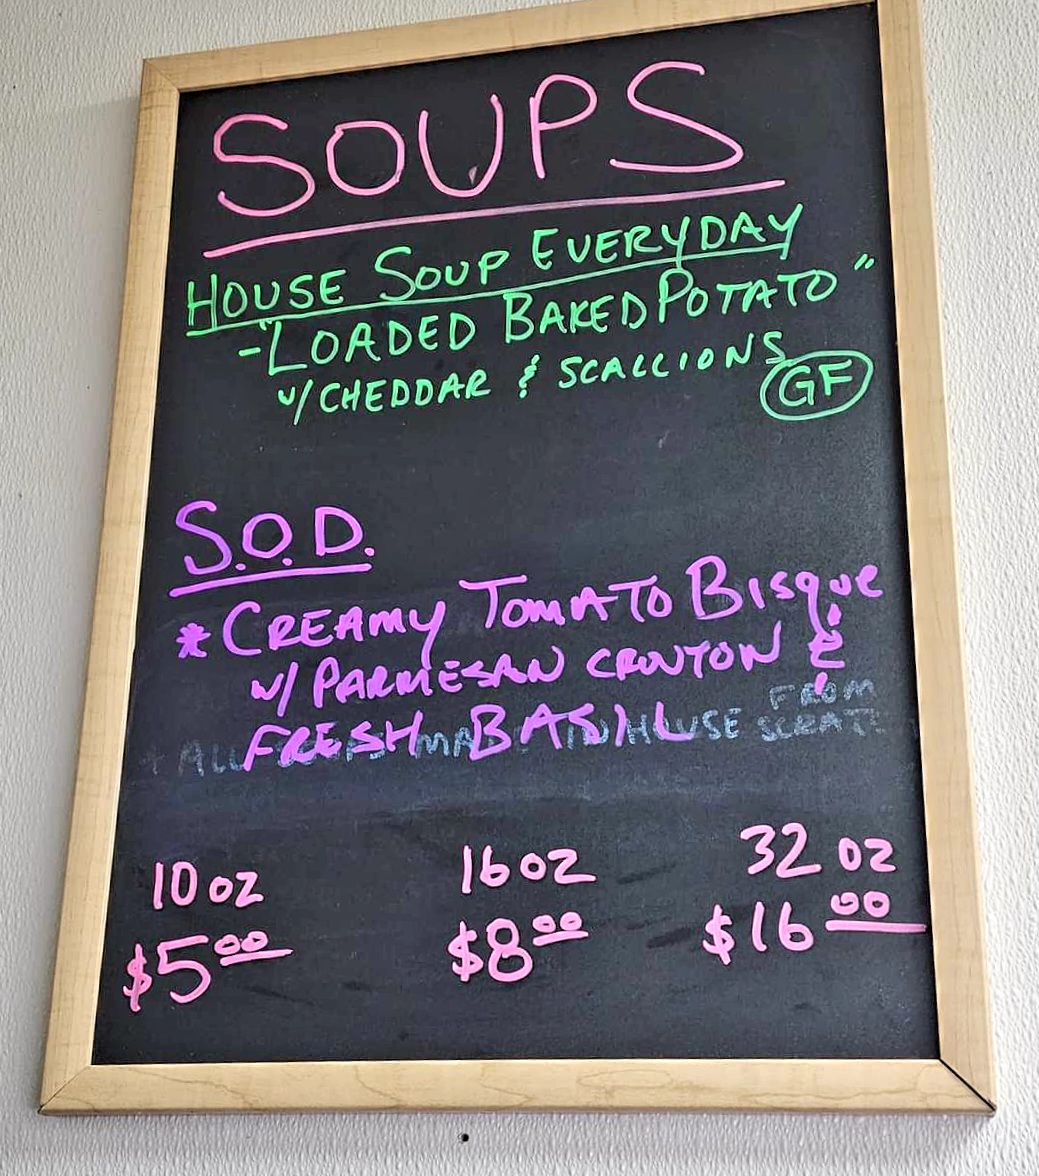 SOUPS
HOUSE SOUP EVERYDAY
-"LOADED BAKED POTATO"
w/ CHEDDAR & SCALLIONS
GF
S.O.D.
* CREAMY TOMATO BISQUE
w/ PARMESAN CROUTON &
FRESH BASIL
FROM
ALL IN HOUSE
10 oz 16 oz 32 oz
$5.00 $8.00 $16.00